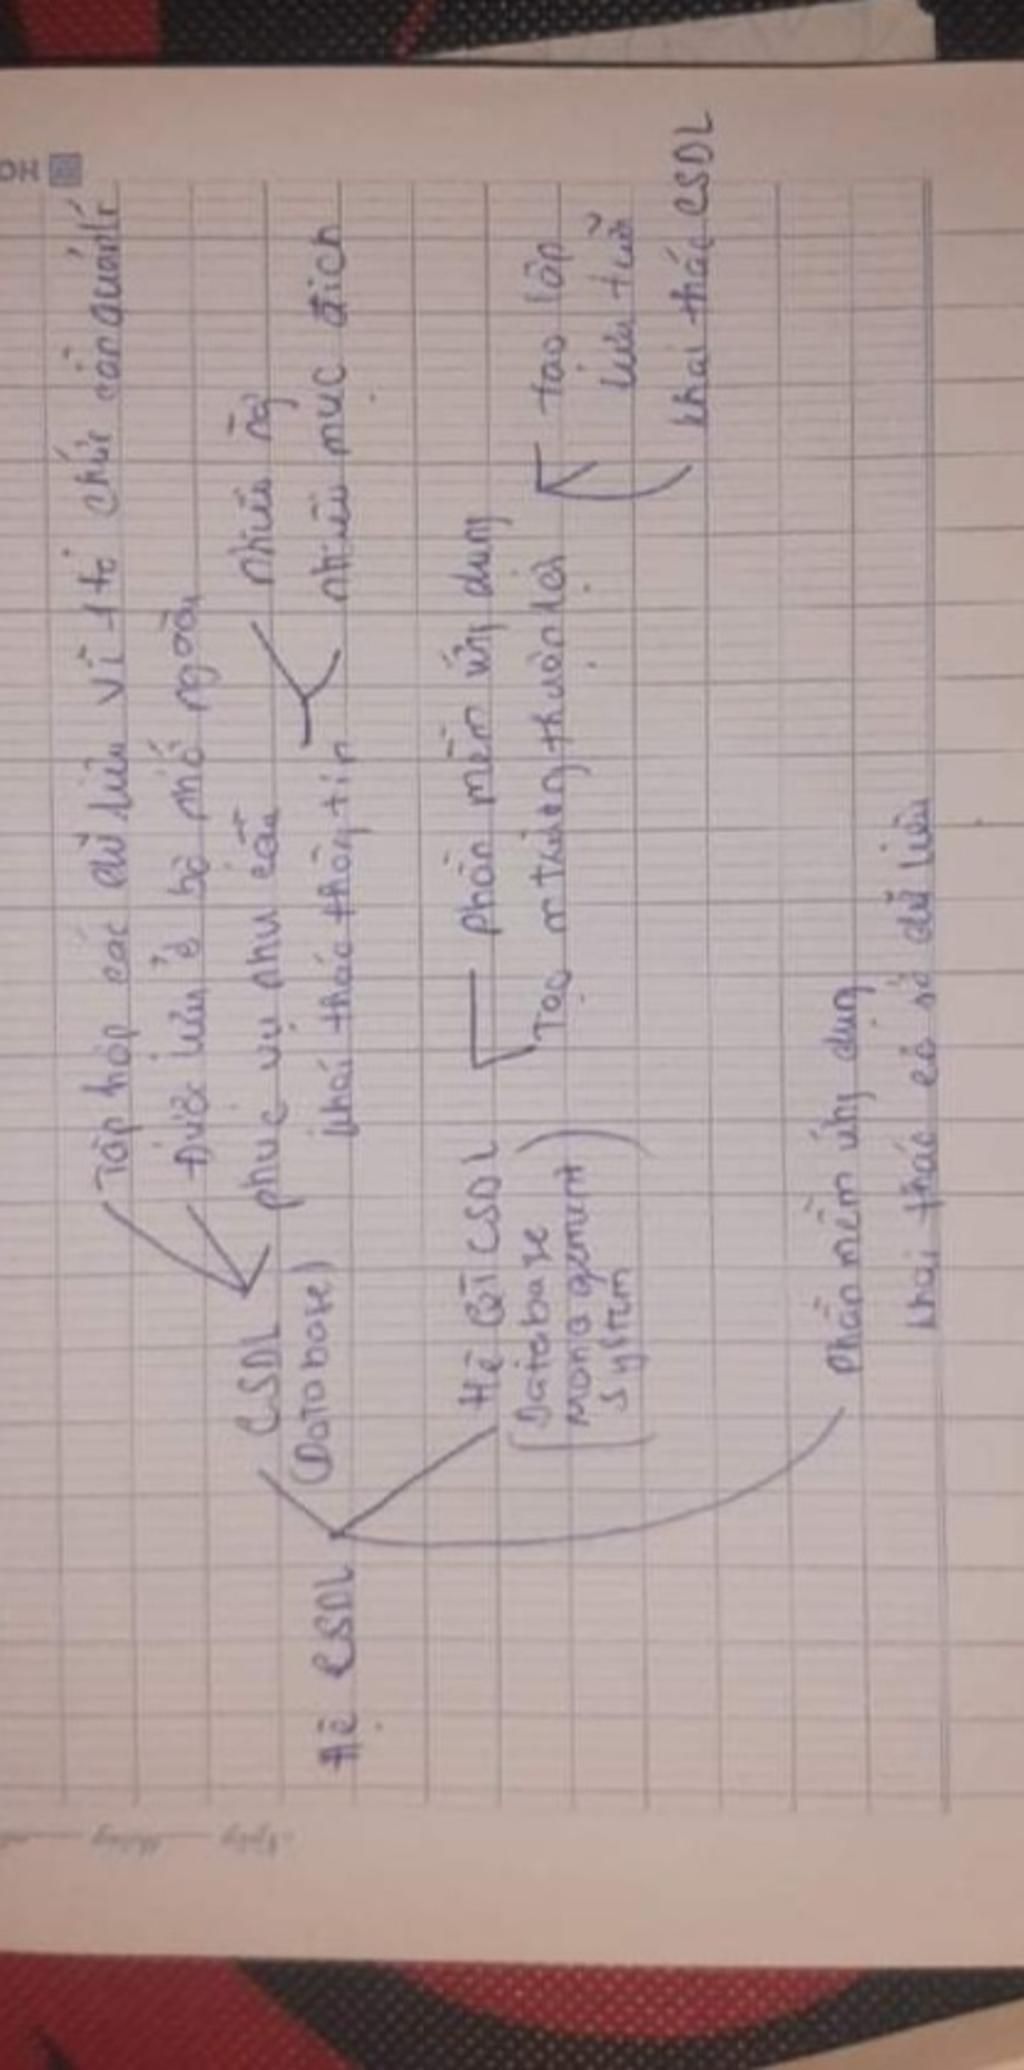 HO
Tập hợp các dữ liệu vì 1 tổ chức cần quản lí
Được lưu ở bộ nhớ ngoài
CSDL
(Database)
phục vụ nhu cầu
khai thác thông tin
nhiều ng
nhiều mục đích
Hệ CSDL
Hệ QTCSDL
(Database
management
system)
phần mềm ứng dụng
Tạo m trường thuận lợi
tạo lập
lưu trữ
khai thác CSDL
Phần mềm ứng dụng
khai thác cơ sở dữ liệu
Ngày tháng